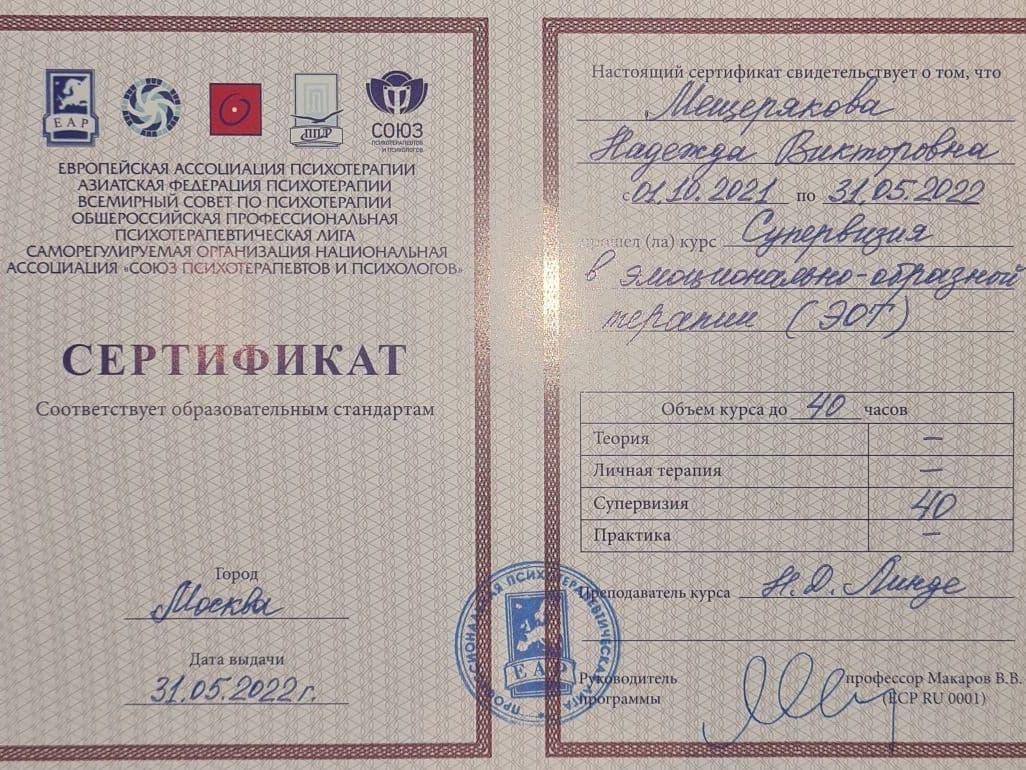 ЕАР
ППЛ
СОЮЗ
ПСИХОТЕРАПЕВТОВ
И ПСИХОЛОГОВ
ЕВРОПЕЙСКАЯ АССОЦИАЦИЯ ПСИХОТЕРАПИИ
АЗИАТСКАЯ ФЕДЕРАЦИЯ ПСИХОТЕРАПИИ
ВСЕМИРНЫЙ СОВЕТ ПО ПСИХОТЕРАПИИ
ОБЩЕРОССИЙСКАЯ ПРОФЕССИОНАЛЬНАЯ
ПСИХОТЕРАПЕВТИЧЕСКАЯ ЛИГА
САМОРЕГУЛИРУЕМАЯ ОРГАНИЗАЦИЯ НАЦИОНАЛЬНАЯ
АССОЦИАЦИЯ «СОЮЗ ПСИХОТЕРАПЕВТОВ И ПСИХОЛОГОВ»
СЕРТИФИКАТ
Соответствует образовательным стандартам
Город
Москва
Дата выдачи
31.05.2022 г.
Настоящий сертификат свидетельствует о том, что
Мещерякова
Надежда Викторовна
с 01.10.2021 по 31.05.2022
прошел (ла) курс Супервизия
в эмоционально-образной
терапии (ЭОТ)
Объем курса до 40 часов
Теория —
Личная терапия —
Супервизия 40
Практика —
Преподаватель курса Н.Д. Линде
Руководитель
программы
профессор Макаров В.В.
(ECP RU 0001)
ПСИХОТЕРАПЕВТИЧЕСКАЯ ЛИГА
ЕАР